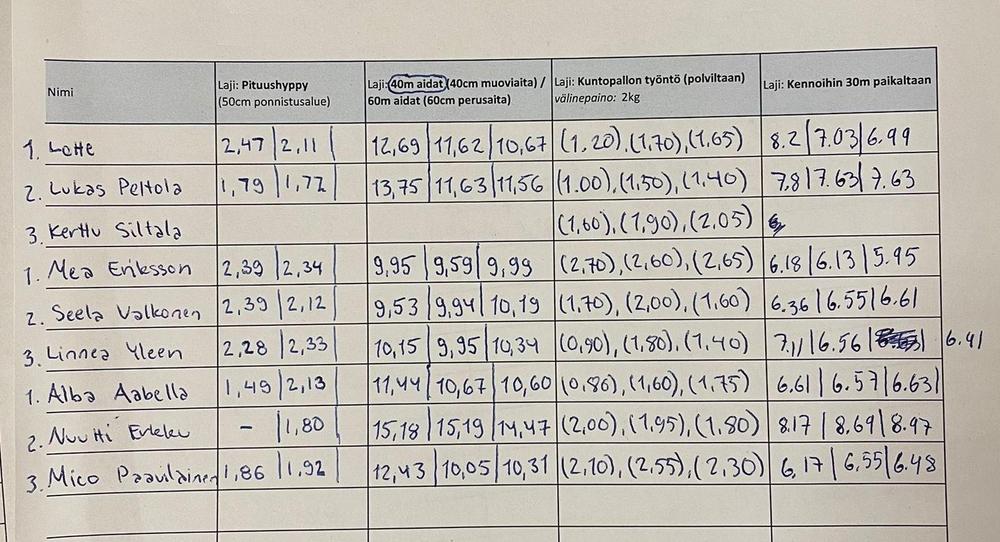 Nimi | Laji: Pituushyppy (50cm ponnistusalue) | Laji: 40m aidat (40cm muoviaita) / 60m aidat (60cm perusaita) | Laji: Kuntopallon työntö (polviltaan) välinepaino: 2kg | Laji: Kennoihin 30m paikaltaan
1. Lotte | 2,47 | 2,11 | 12,69 | 11,62 | 10,67 | (1.20), (1,70), (1,65) | 8.2 | 7.03 | 6.99
2. Lukas Peltola | 1,79 | 1,77 | 13,75 | 11,63 | 11,56 | (1.00), (1,50), (1,40) | 7.8 | 7.63 | 7.63
3. Kerttu Siltala | (1,60), (1,90), (2,05)
1. Mea Eriksson | 2,39 | 2,34 | 9,95 | 9,59 | 9,99 | (2,70), (2,60), (2,65) | 6.18 | 6.13 | 5.95
2. Seela Valkonen | 2,39 | 2,12 | 9,53 | 9,94 | 10,19 | (1,70), (2,00), (1,60) | 6.36 | 6.55 | 6.61
3. Linnea Yleen | 2,28 | 2,33 | 10,15 | 9,95 | 10,34 | (0,90), (1,80), (1,40) | 7.11 | 6.56 | 6.41
1. Alba Aabella | 1,49 | 2,13 | 11,44 | 10,67 | 10,60 | (0,86), (1,60), (1,75) | 6.61 | 6.57 | 6.63
2. Nuutti | - | 1,80 | 15,18 | 15,19 | 14,47 | (2,00), (1,95), (1,80) | 8.17 | 8.69 | 8.97
3. Mico Paavilainen | 1,86 | 1,92 | 12,43 | 10,05 | 10,31 | (2,10), (2,55), (2,30) | 6,17 | 6,55 | 6.48